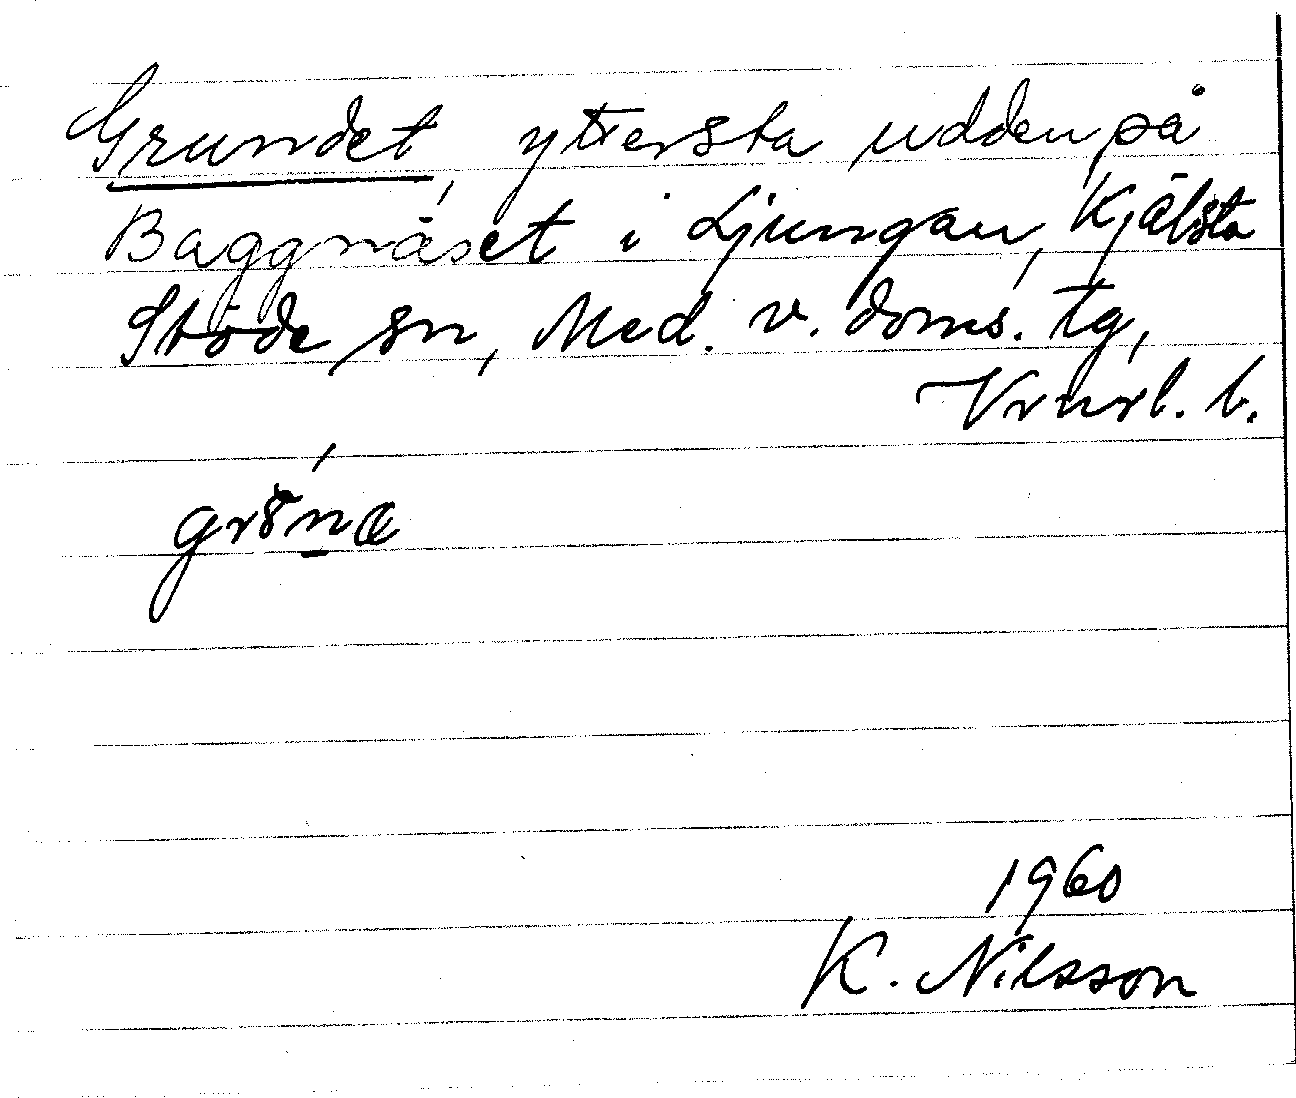 Grundet, yttersta udden på
Baggnäset i Ljungan, Kjälsta
Stöde sn, Med. v. doms. tg,
Vrnrl. l.
grŏ́n̲æ
1960
K. Nilsson